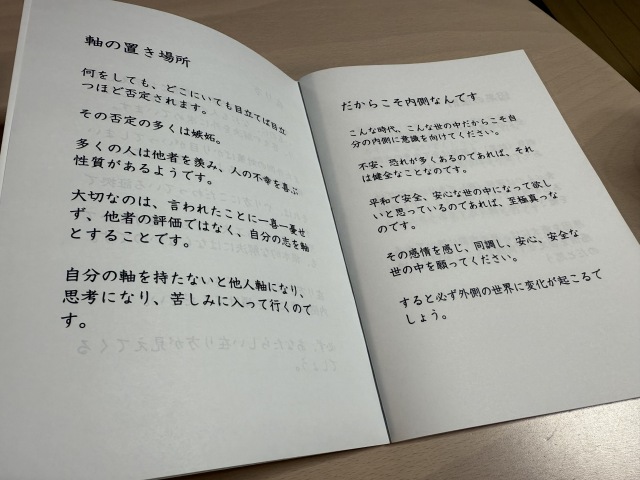 軸の置き場所
何をしても、どこにいても目立てば目立
つほど否定されます。
その否定の多くは嫉妬。
多くの人は他者を羨み、人の不幸を喜ぶ
性質があるようです。
大切なのは、言われたことに一喜一憂せ
ず、他者の評価ではなく、自分の志を軸
とすることです。
自分の軸を持たないと他人軸になり、
思考になり、苦しみに入って行くので
す。
だからこそ内側なんです
こんな時代、こんな世の中だからこそ自
分の内側に意識を向けてください。
不安、恐れが多くあるのであれば、それ
は健全なことなのです。
平和で安全、安心な世の中になって欲し
いと思っているのであれば、至極真っな
のです。
その感情を感じ、同調し、安心、安全な
世の中を願ってください。
すると必ず外側の世界に変化が起こるで
しょう。